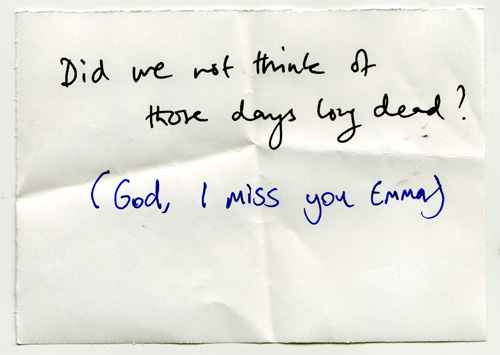 Did we not think of
those days long dead?
(God, I miss you Emma)